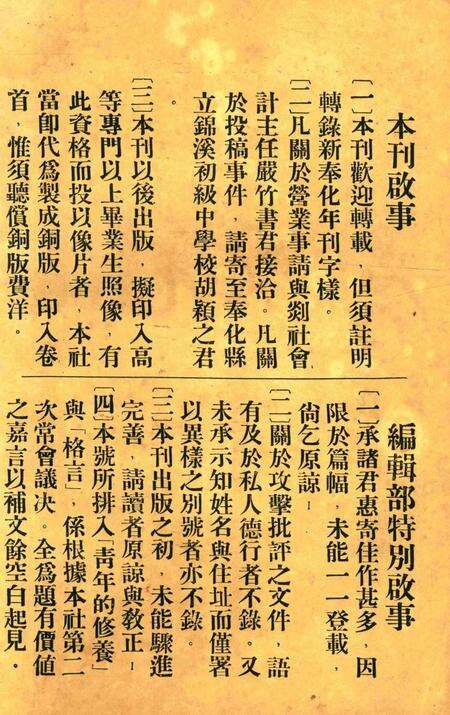 本刊啟事
〔一〕本刊歡迎轉載，但須註明
轉錄新奉化年刊字樣。
〔二〕凡關於營業事請與剡社會
計主任嚴竹書君接洽。凡關
於投稿事件，請寄至奉化縣
立錦溪初級中學校胡穎之君
。
〔三〕本刊以後出版，擬印入高
等專門以上畢業生照像，有
此資格而投以像片者，本社
當卽代爲製成銅版，印入卷
首，惟須聽償銅版費洋。
編輯部特別啟事
〔一〕承諸君惠寄佳作甚多，因
限於篇幅，未能一一登載，
尙乞原諒！
〔二〕關於攻擊批評之文件，語
有及於私人德行者不錄。又
未承示知姓名與住址而僅署
以異樣之別號者亦不錄。
〔三〕本刊出版之初，未能驟進
完善，請讀者原諒與敎正！
〔四〕本號所排入「靑年的修養」
與「格言」，係根據本社第二
次常會議决。全爲題有價値
之嘉言以補文餘空白起見。